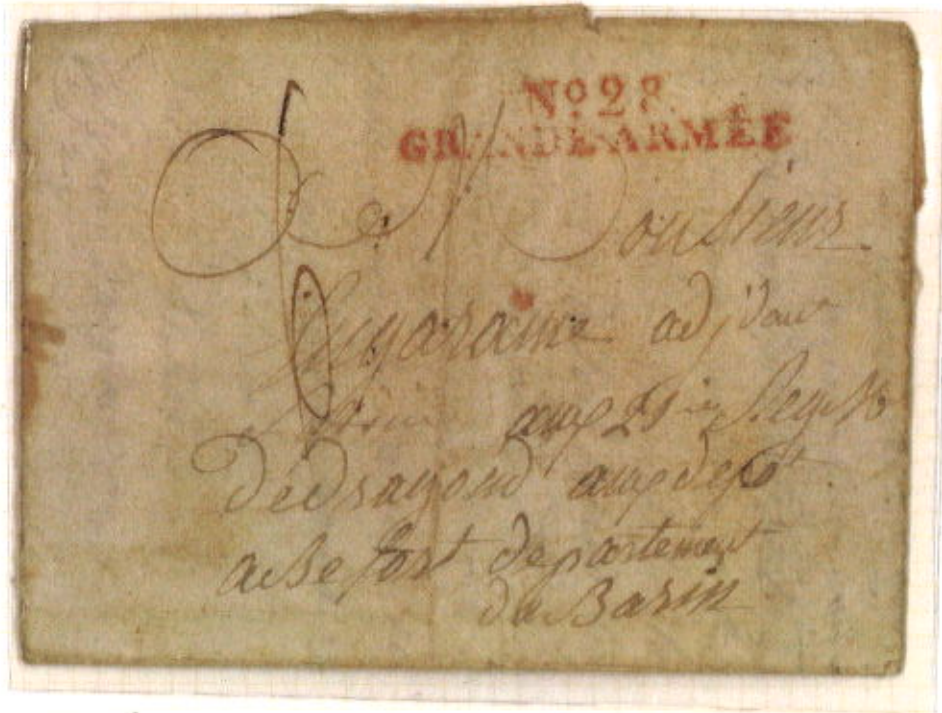 No 28.
GRANDE ARMÉE
A Monsieur
adjdant
aux 21 Regt
dedragond aux depot
a Befort departement
du Barin